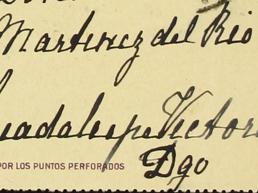 Martinez del Rio
Guadalupe Victoria
POR LOS PUNTOS PERFORADOS
Dgo